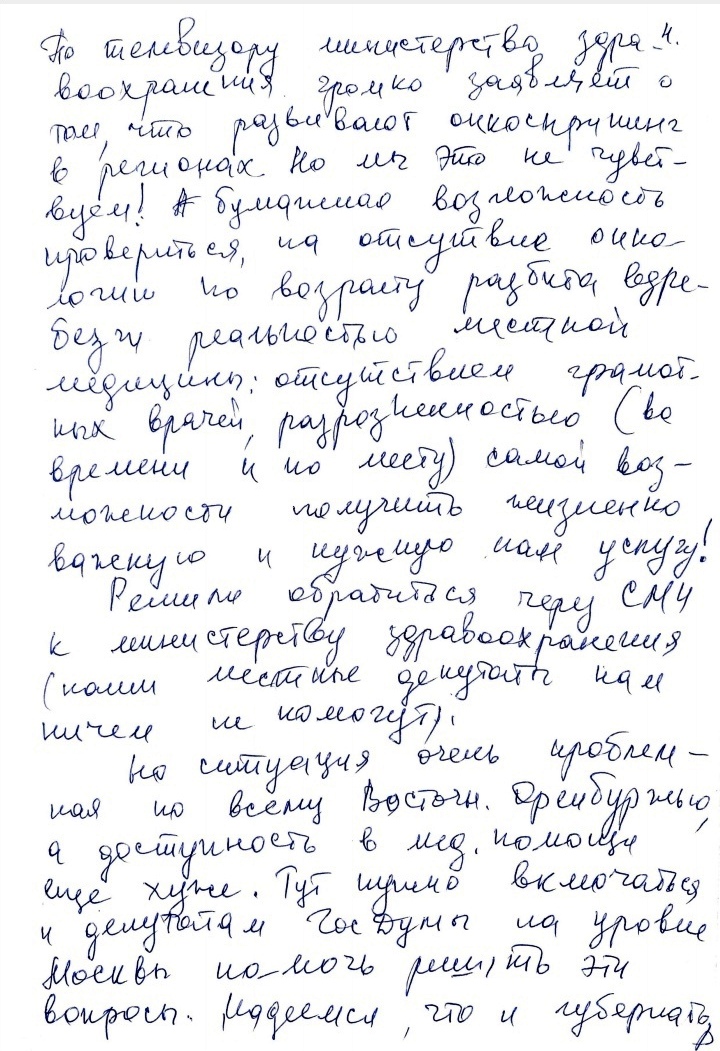 По телевизору министерство здра- 4.
воохранения громко заявляет о
том, что развивают онкоскрининг
в регионах. Но мы это не чувст-
вуем! А бумажная возможность
провериться, на отсутствие онко-
логии по возрасту разбита вдре-
безги реальностью местной
медицины: отсутствием грамот-
ных врачей, разрозненностью (во
времени и по месту) самой воз-
можности получить жизненно
важную и нужную нам услугу!
Решили обратиться через СМИ
к министерству здравоохранения
(наши местные депутаты нам
ничем не помогут).
Но ситуация очень проблем-
ная по всему Восточн. Оренбуржью,
а доступность в мед. помощи
еще хуже. Тут нужно включаться
и депутатам ГосДумы на уровне
Москвы помочь решить эти
вопросы. Надеемся, что и губернатор